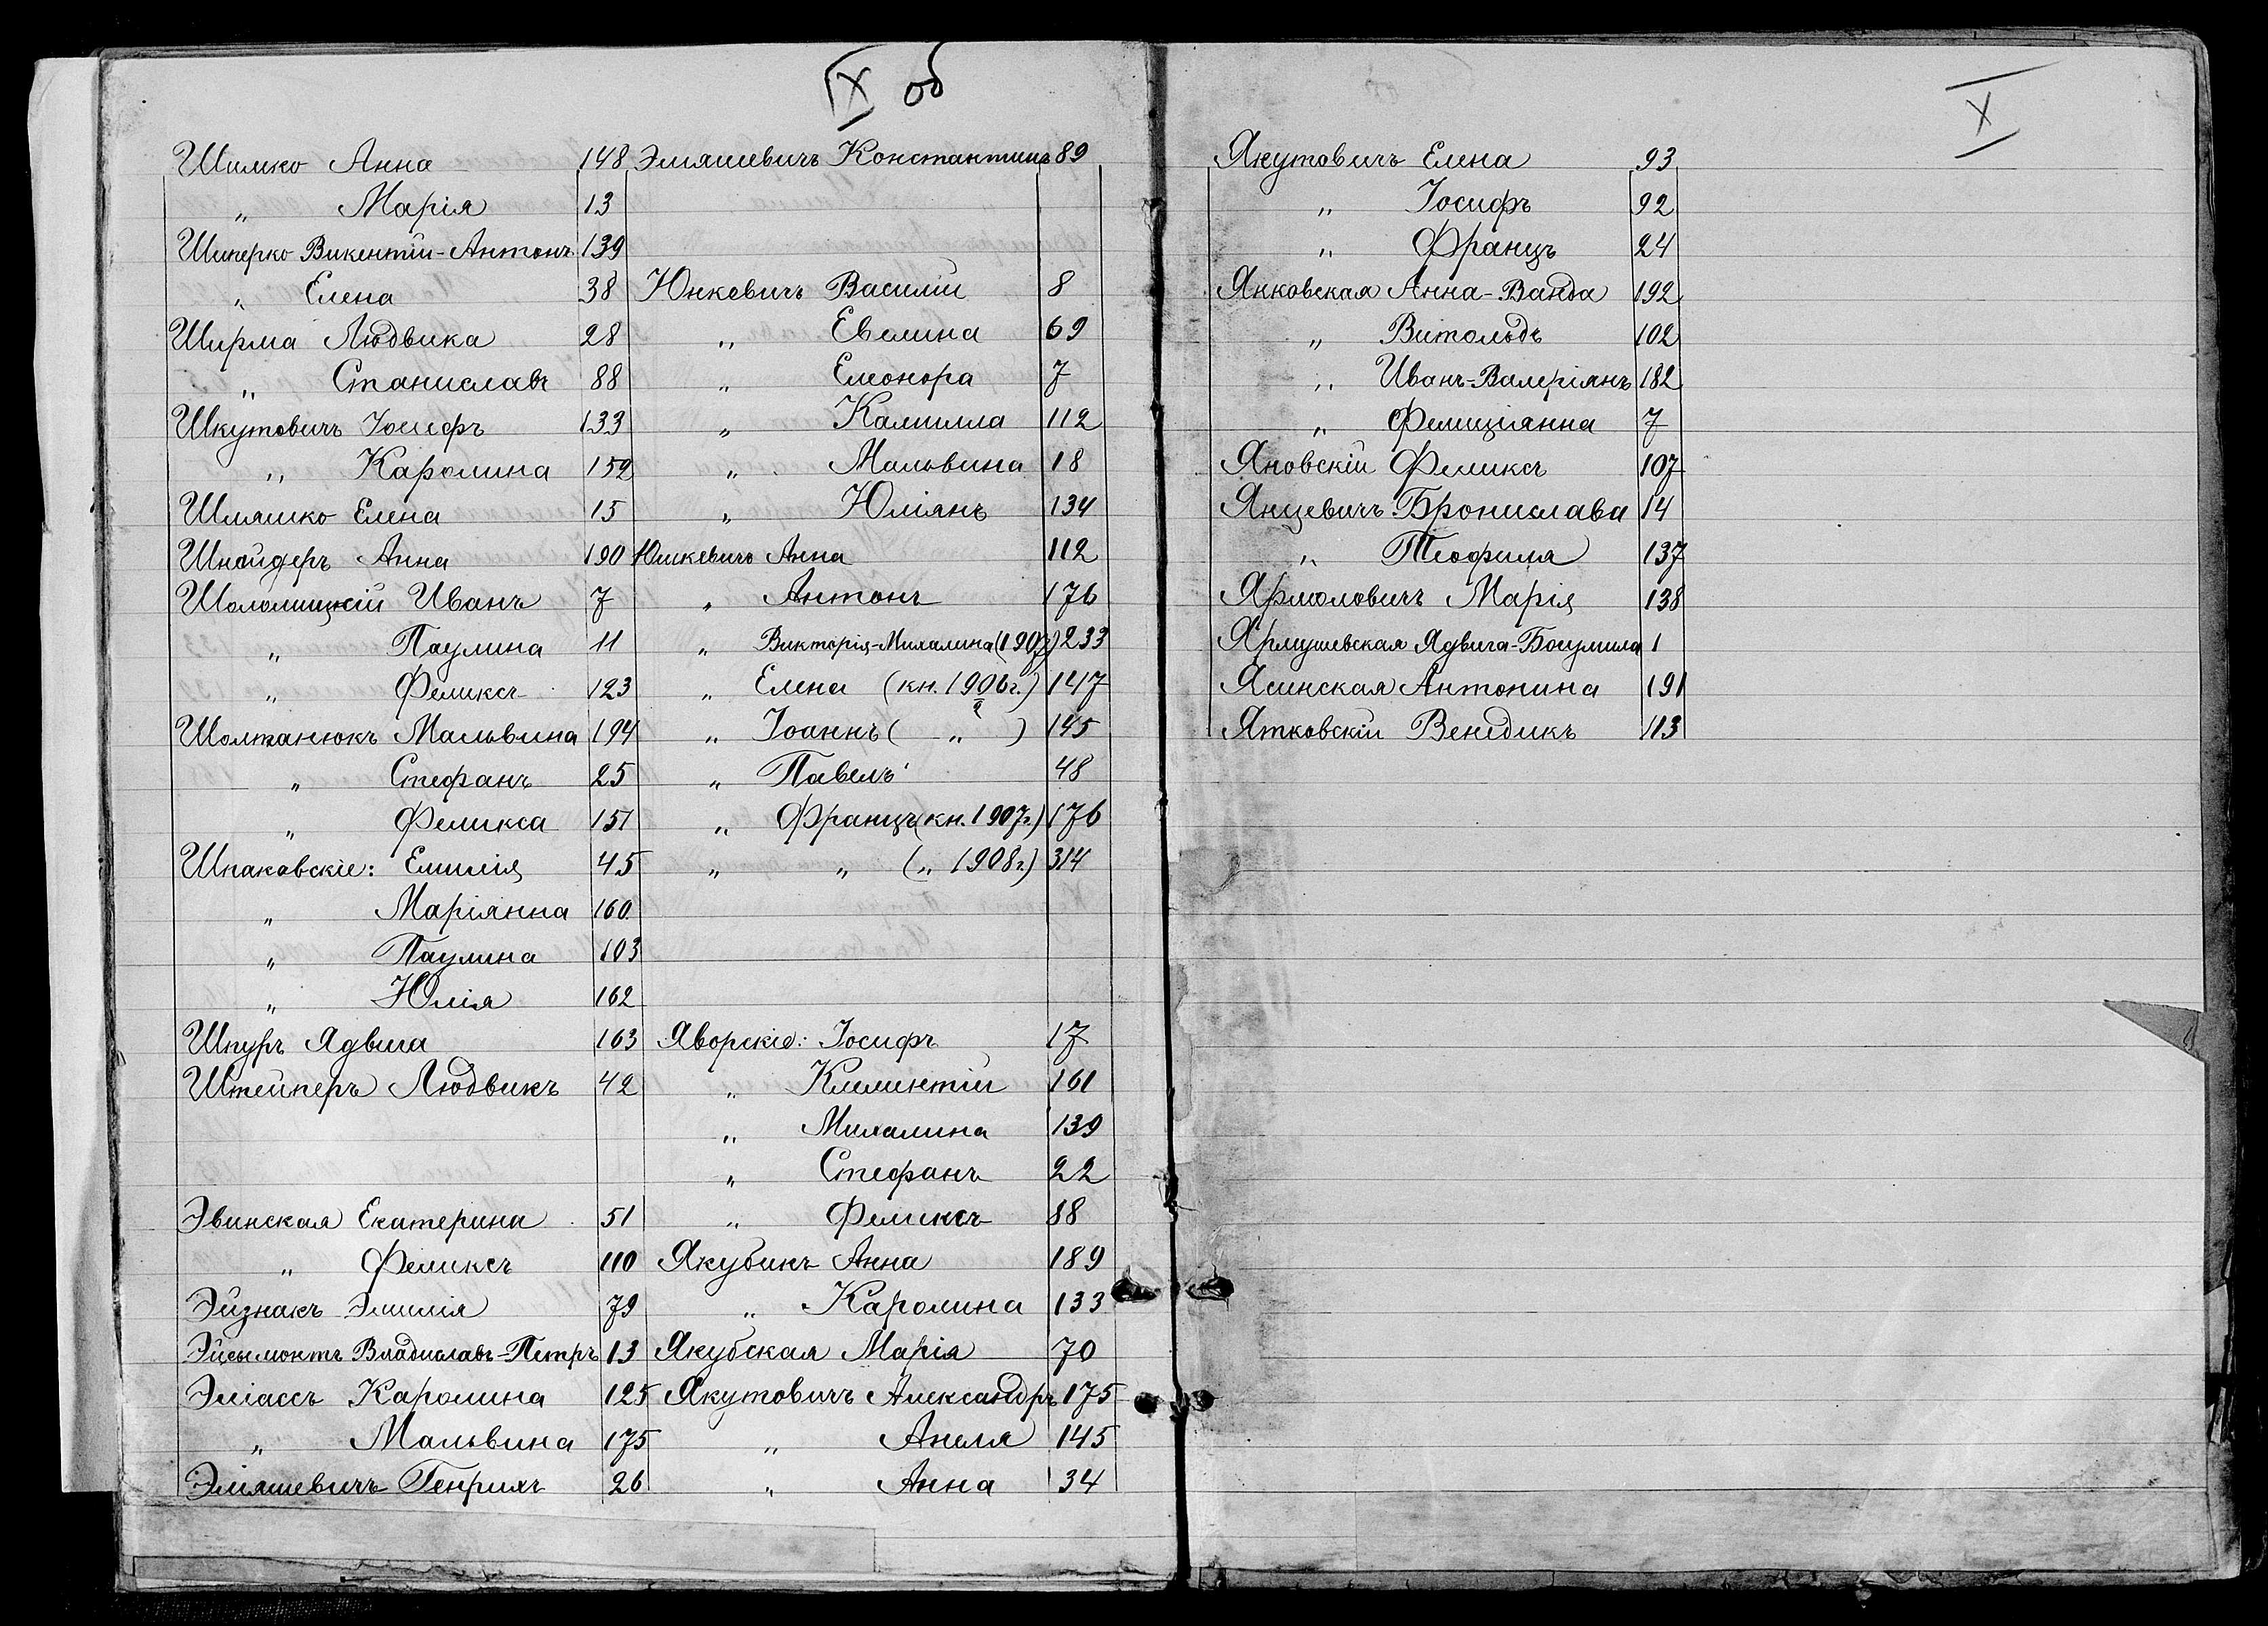 IX об
Шимко Анна 148
„ Марія 13
Шиперко Викентій-Антонъ 139
„ Елена 38
Ширма Людвика 28
„ Станиславъ 88
Шкутовичъ Іосифъ 133
„ Каролина 159
Шляшко Елена 15
Шнайдеръ Анна 190
Шоломицкій Иванъ 7
„ Паулина 11
„ Феликсъ 123
Шолтанюкъ Мальвина 194
„ Стефанъ 25
„ Феликса 151
Шпаковскіе: Емилія 45
„ Маріянна 160
„ Паулина 103
„ Юлія 162
Шпуръ Ядвига 163
Штейперъ Людвикъ 42
Эвинская Екатерина 51
„ Феликсъ 110
Эйзнакъ Эмилія 79
Эйсымонтъ Владиславъ-Петръ 13
Эліассъ Каролина 125
„ Мальвина 175
Эліяшевичъ Генрихъ 26
Эліяшевичъ Константинъ 89
Юнкевичъ Василій 8
„ Евелина 69
„ Елеонора 7
„ Камилла 112
„ Мальвина 18
„ Юліянъ 134
Юшкевичъ Анна 112
„ Антонъ 176
„ Викторія-Михалина (1907) 233
„ Елена (кн. 1906 г.) 147
„ Іоаннъ ( „ ) 145
„ Павелъ 48
„ Францъ (кн. 1907 г.) 176
„ „ („ 1908 г.) 314
Яворскіе: Іосифъ 17
„ Климентій 161
„ Михалина 139
„ Стефанъ 22
„ Феликсъ 88
Якубикъ Анна 189
„ Каролина 133
Якубская Марія 70
Якутовичъ Александръ 175
„ Анеля 145
„ Анна 34
X
Якутовичъ Елена 93
„ Іосифъ 92
„ Францъ 24
Янковская Анна-Ванда 192
„ Витольдъ 102
„ Иванъ-Валеріянъ 182
„ Фелиціянна 7
Яновскій Феликсъ 107
Янцевичъ Брониславa 14
„ Теофиля 137
Ярмоловичъ Марія 138
Ярмушевская Ядвига-Богумила 1
Ясинская Антонина 191
Ятковскій Венедикъ 113